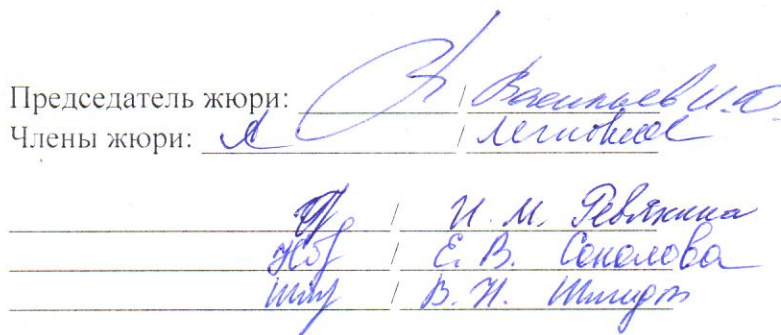 Председатель жюри: / Васильев И.О.
Члены жюри: /
/ И. М. Ревякина
/ Е. В. Соколова
/ В. Н. Шмидт